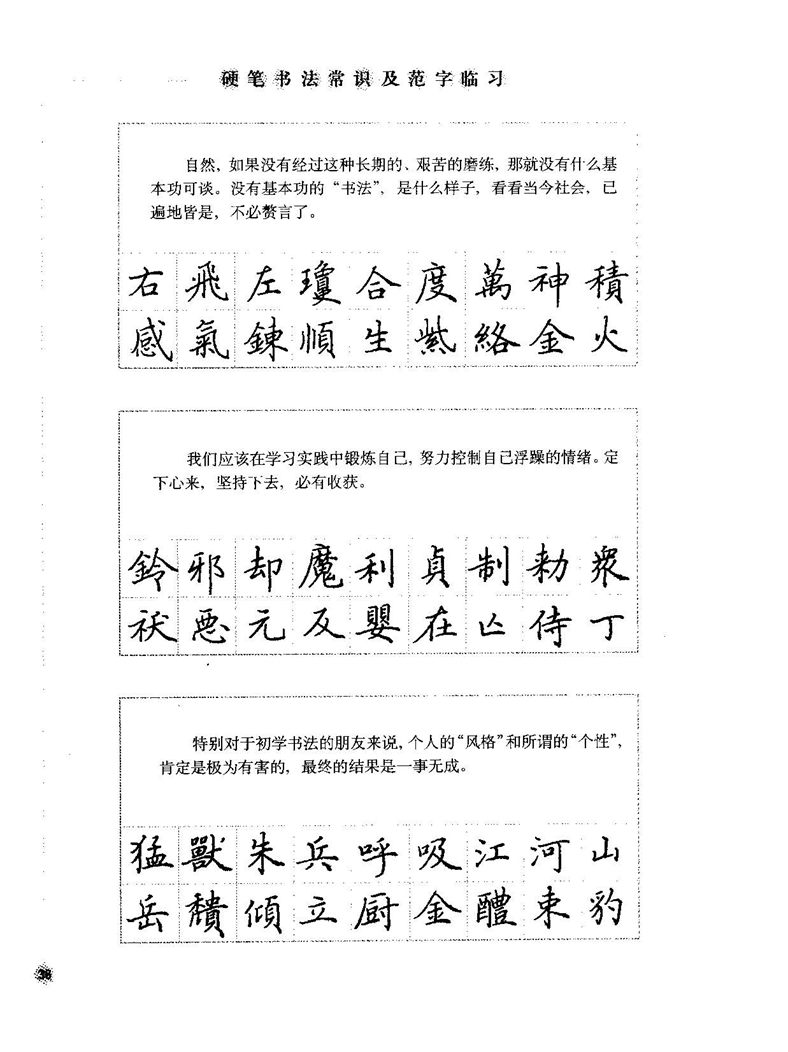 硬笔书法常识及范字临习
自然，如果没有经过这种长期的、艰苦的磨练，那就没有什么基
本功可谈。没有基本功的“书法”，是什么样子，看看当今社会，已
遍地皆是，不必赘言了。
右飛左瓊合度萬神積
感氣鍊順生紫絡金火
我们应该在学习实践中锻炼自己，努力控制自己浮躁的情绪。定
下心来，坚持下去，必有收获。
鈴邪却魔利貞制勑衆
袄惡元及嬰在亾侍丁
特别对于初学书法的朋友来说，个人的“风格”和所谓的“个性”，
肯定是极为有害的，最终的结果是一事无成。
猛獸朱兵呼吸江河山
岳穨傾立厨金醴束豹
36